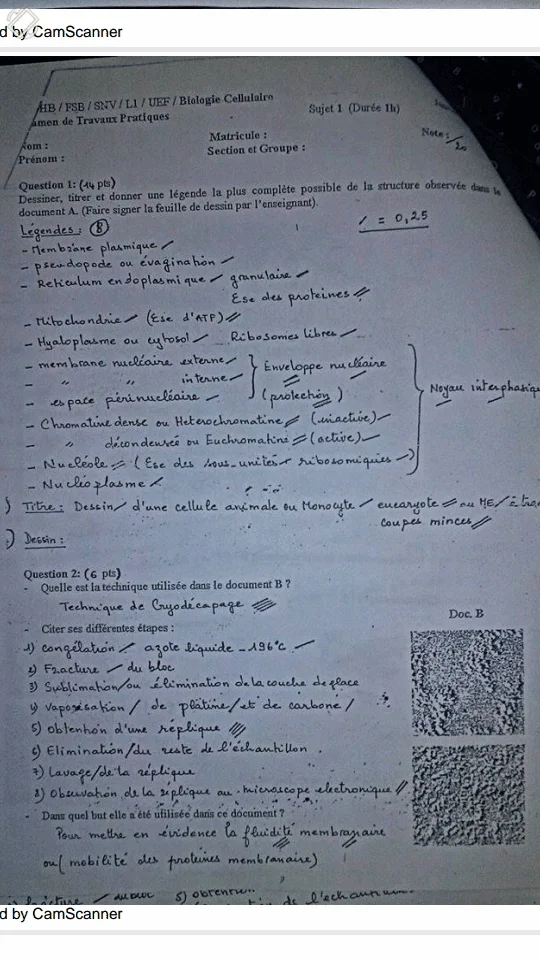 d by CamScanner
HB / FSB / SNV / L1 / UEF / Biologie Cellulaire
amen de Travaux Pratiques
Sujet 1 (Durée 1h)
Nom :
Prénom :
Matricule :
Section et Groupe :
Note : /20
Question 1: (14 pts)
Dessiner, titrer et donner une légende la plus complète possible de la structure observée dans le
document A. (Faire signer la feuille de dessin par l'enseignant).
Légendes : B
/ = 0,25
- Membrane plasmique
- pseudopode ou évagination
- Reticulum endoplasmique granulaire
Ese des proteines
- Mitochondrie (Ese d'ATP)
- Hyaloplasme ou cytosol Ribosomes libres
- membrane nucléaire externe
- " " interne
- espace périnucléaire
Enveloppe nucléaire
(protection)
Noyau interphasique
- Chromatine dense ou Heterochromatine (inactive)
- " décondensée ou Euchromatine (active)
- Nucléole = (Ese des sous-unités ribosomiques)
- Nucléoplasme
) Titre : Dessin d'une cellule animale ou Monocyte eucaryote ou ME/
coupes minces
) Dessin :
Question 2: (6 pts)
- Quelle est la technique utilisée dans le document B ?
Technique de Cryodécapage
Doc. B
- Citer ses différentes étapes :
1) congélation azote liquide -196°C
2) Fracture du bloc
3) Sublimation/ou élimination de la couche de glace
4) Vaporisation/ de platine/et de carbone/
5) Obtention d'une réplique
6) Elimination/du reste de l'échantillon.
7) Lavage/de la réplique
8) Observation de la réplique au microscope electronique
- Dans quel but elle a été utilisée dans ce document ?
Pour mettre en évidence la fluidité membranaire
ou (mobilité des proteines membranaire)
du bloc 5) obtention
de l'echantillon
d by CamScanner